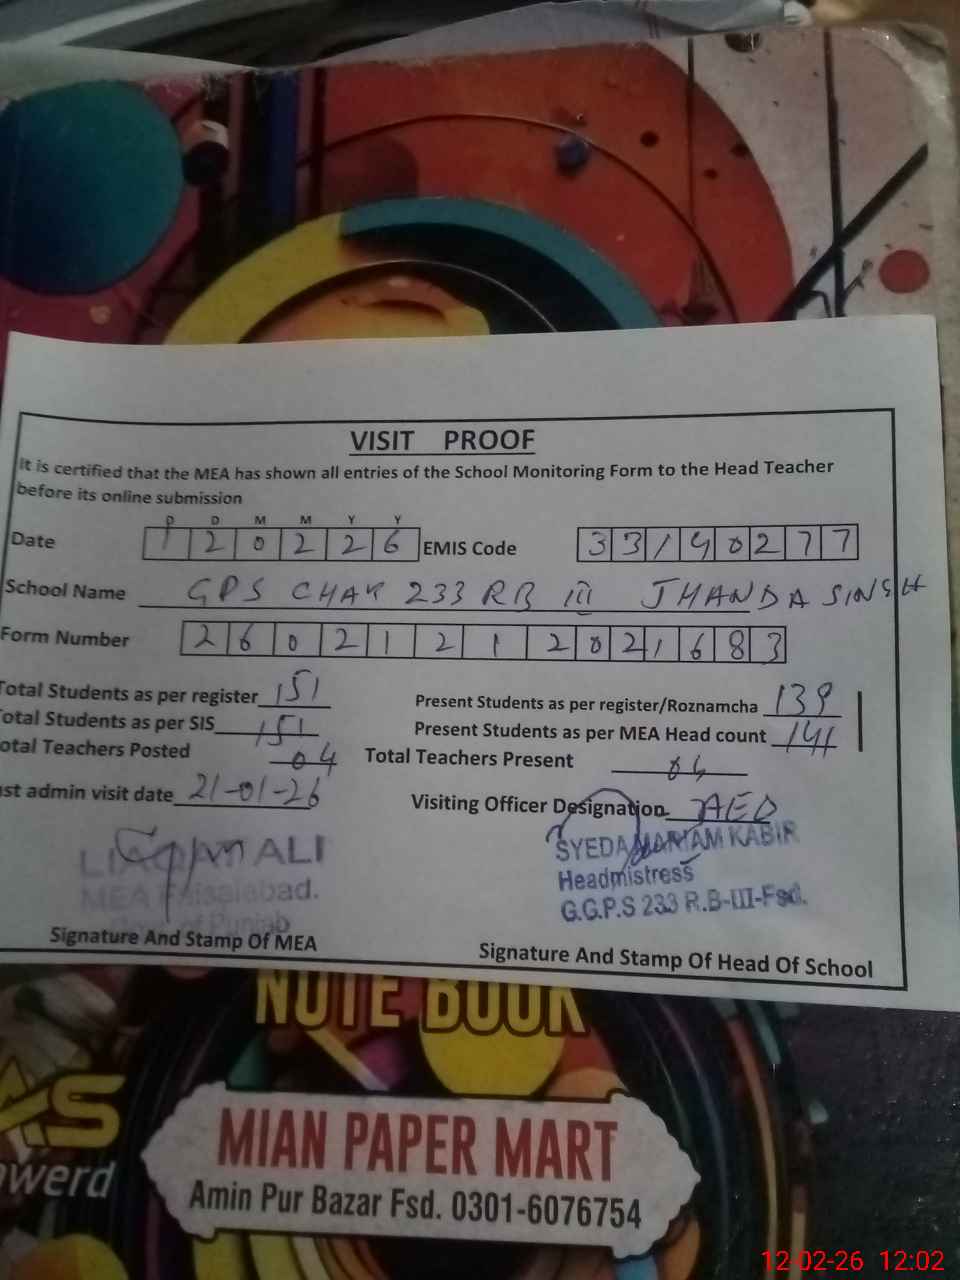 VISIT PROOF
It is certified that the MEA has shown all entries of the School Monitoring Form to the Head Teacher
before its online submission
D D M M Y Y
Date 1 2 0 2 2 6 EMIS Code 3 3 1 4 0 2 7 7
School Name GPS CHAK 233 RB III JHANDA SINGH
Form Number 2 6 0 2 1 2 1 2 0 2 1 6 8 3
Total Students as per register 151 Present Students as per register/Roznamcha 139
Total Students as per SIS 151 Present Students as per MEA Head count 141
otal Teachers Posted 04 Total Teachers Present 04
st admin visit date 21-01-26 Visiting Officer Designation AEO
ALI
MEA Faisalabad.
Govt of Punjab
SYEDA MARIAM KABIR
Headmistress
G.G.P.S 233 R.B-III-Fsd.
Signature And Stamp Of MEA
Signature And Stamp Of Head Of School
NOTE BOOK
AS
owerd
MIAN PAPER MART
Amin Pur Bazar Fsd. 0301-6076754
12-02-26 12:02